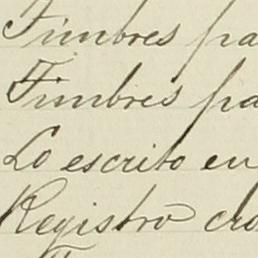 Timbres pa
Timbres pa
Lo escrito en
Registro cro